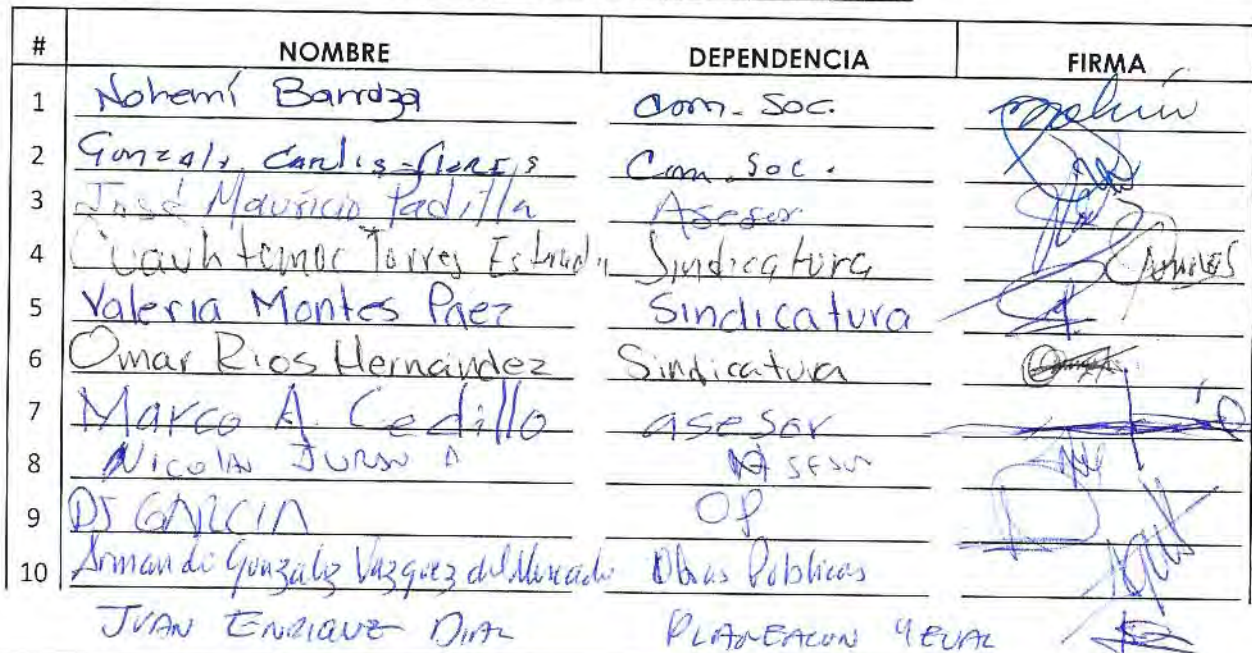 # NOMBRE DEPENDENCIA FIRMA
1 Nohemí Barraza Com. Soc.
2 Gonzalo Com. Soc.
3 José Mauricio Padilla Asesor
4 Cuauhtemoc Torres Estrada Sindicatura
5 Valeria Montes Paez Sindicatura
6 Omar Rios Hernández Sindicatura
7 Marco A. Cedillo asesor
8 Nicolas Asesor
9 DJ GARCIA OP
10 Armando González Vazquez del Mercado Obras Públicas
JUAN ENRIQUE DIAZ PLANEACION Y EVAL